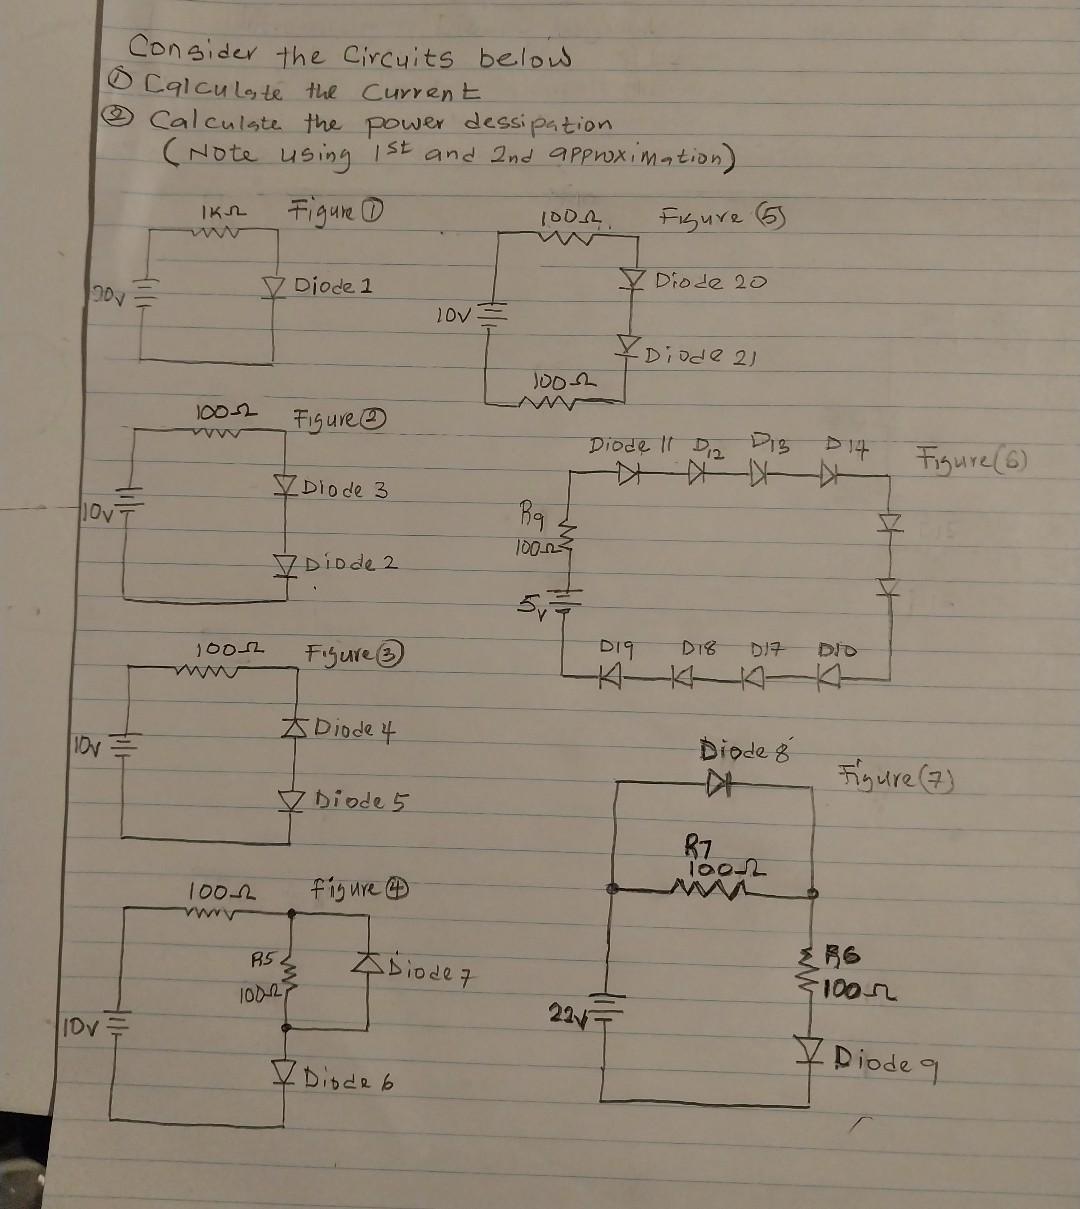 Consider the Circuits below
① Calculate the Current
② Calculate the power dessipation
(Note using 1st and 2nd approximation)
1KΩ Figure ①
Diode 1
100Ω Figure (5)
10V
Diode 20
Diode 21
100Ω
100Ω Figure ②
10V
Diode 3
Diode 2
Diode 11 D12 D13 D14 Figure (6)
R9
100Ω
5v
D19 D18 D17 D10
100Ω Figure ③
10v
Diode 4
Diode 5
100Ω figure ④
R5
100Ω
Diode 7
10v
Diode 6
Diode 8 Figure (7)
R7
100Ω
R6
100Ω
22v
Diode 9